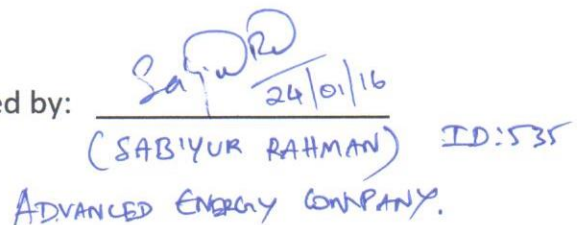 ed by:
24/01/16
(SAB'YUR RAHMAN) ID:535
ADVANCED ENERGY COMPANY.